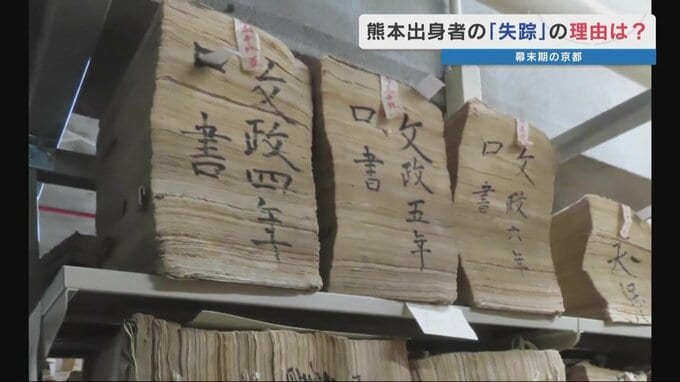 熊本出身者の「失踪」の理由は?
幕末期の京都
文政四年
口書
文政五年
口書
文政六年
口書